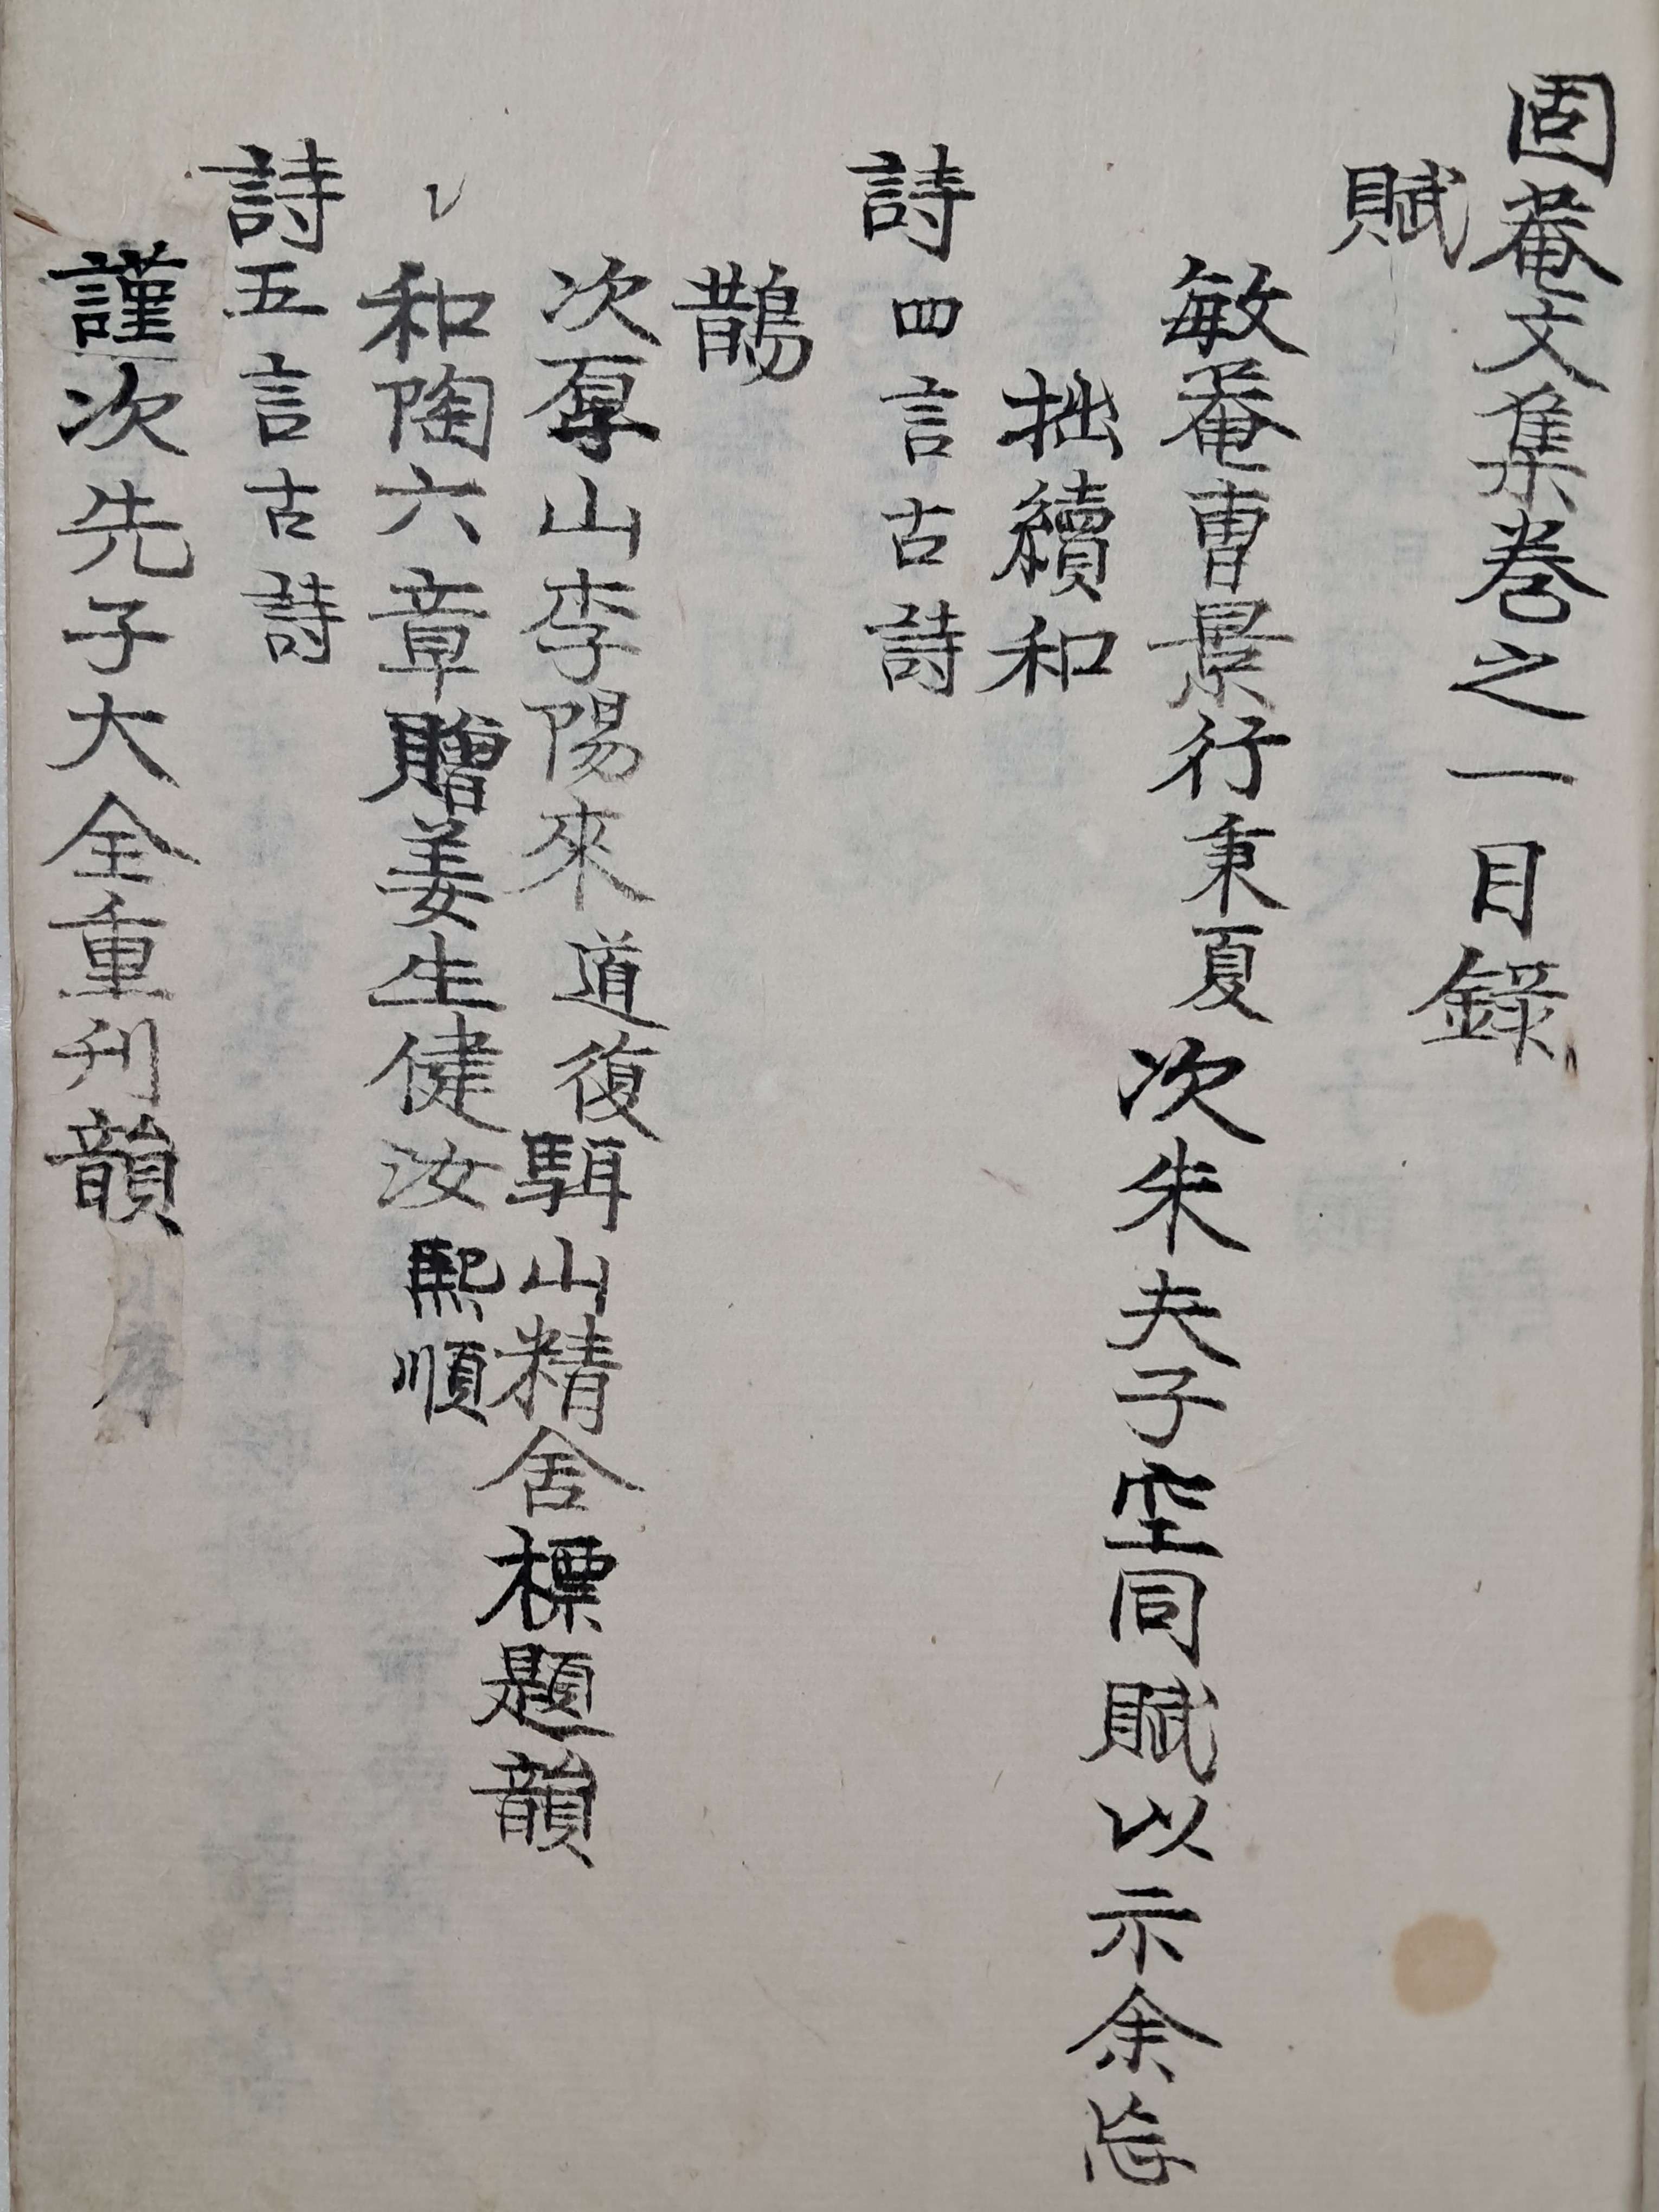 固菴文集卷之一目錄
賦
敏菴曺景行秉夏次朱夫子空同賦以示余忘
拙續和
詩四言古詩
鵲
次厚山李陽來道復駬山精舍標題韻
和陶六章贈姜生健汝熙順
詩五言古詩
謹次先子大全重刊韻小序